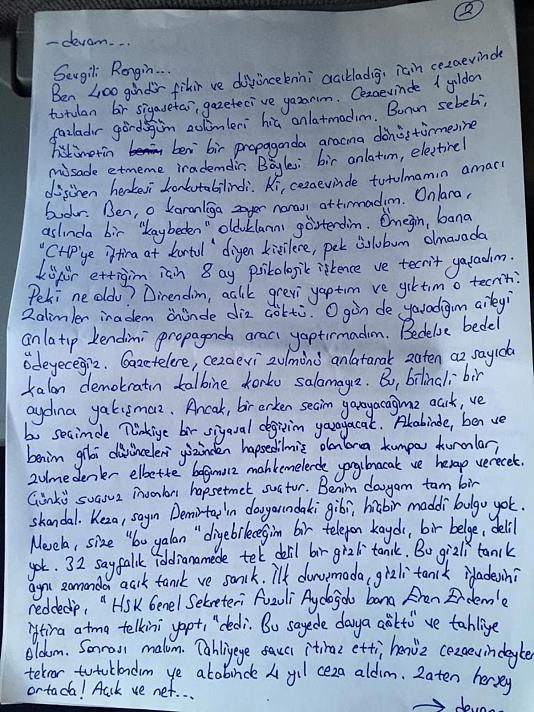 2
- devam...
Sevgili Rengin...
Ben 400 gündür fikir ve düşüncelerini açıkladığı için cezaevinde
tutulan bir siyasetçi, gazeteci ve yazarım. Cezaevinde 1 yıldan
fazladır gördüğüm zulümleri hiç anlatmadım. Bunun sebebi,
hükümetin beni bir propaganda aracına dönüştürmesine
müsade etmeme irademdir. Böylesi bir anlatım, eleştirel
düşünen herkesi korkutabilirdi. Ki, cezaevinde tutulmamın amacı
budur. Ben, o karanlığa zafer narası attırmadım. Onlara,
aslında bir "kaybeden" olduklarını gösterdim. Örneğin, bana
"CHP'ye iftira at kurtul" diyen kişilere, pek üslubum olmasada
küfür ettiğim için 8 ay psikolojik işkence ve tecrit yaşadım.
Peki ne oldu? Direndim, açlık grevi yaptım ve yıktım o tecriti.
Zalimler iradem önünde diz çöktü. O gün de yaşadığım çileyi
anlatıp kendimi propaganda aracı yaptırmadım. Bedelse bedel
ödeyeceğiz. Gazetelere, cezaevi zulmünü anlatarak zaten az sayıda
kalan demokratın kalbine korku salamayız. Bu, bilinçli bir
aydına yakışmaz. Ancak, bir erken seçim yaşayacağımız açık, ve
bu seçimde Türkiye bir siyasal değişim yaşayacak. Akabinde, ben ve
benim gibi düşünceleri yüzünden hapsedilmiş olanlara kumpas kuranlar,
zulmedenler elbette bağımsız mahkemelerde yargılanacak ve hesap verecek.
Çünkü suçsuz insanları hapsetmek suçtur. Benim davam tam bir
skandal. Keza, sayın Demirtaş'ın davasındaki gibi, hiçbir maddi bulgu yok.
Mesela, size "bu yalan" diyebileceğim bir telefon kaydı, bir belge, delil
yok. 32 sayfalık iddianamede tek delil bir gizli tanık. Bu gizli tanık
aynı zamanda açık tanık ve sanık. İlk duruşmada, gizli tanık ifadesini
reddedip, "HSK Genel Sekreteri Fuzuli Aydoğdu bana Eren Erdem'e
iftira atma telkini yaptı" dedi. Bu sayede dava çöktü ve tahliye
oldum. Sonrası malum. Tahliyeye savcı itiraz etti, henüz cezaevindeyken
tekrar tutuklandım ve akabinde 4 yıl ceza aldım. Zaten herşey
ortada! Açık ve net...
→ devam